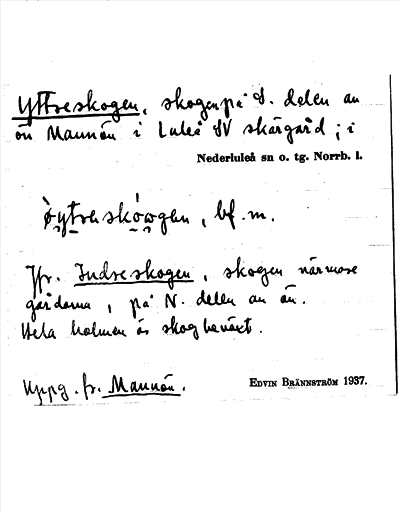 Yttreskogen, skogen på S. delen av
ön Mannön i Luleå SV skärgård ; i
Nederluleå sn o. tg. Norrb. l.
bf. m.
Jfr. Indreskogen, skogen närmare
gårdarna, på N. delen av ön.
Hela holmen är skogbeväxt.
Uppg. fr. Mannön.
EDVIN BRÄNNSTRÖM 1937.